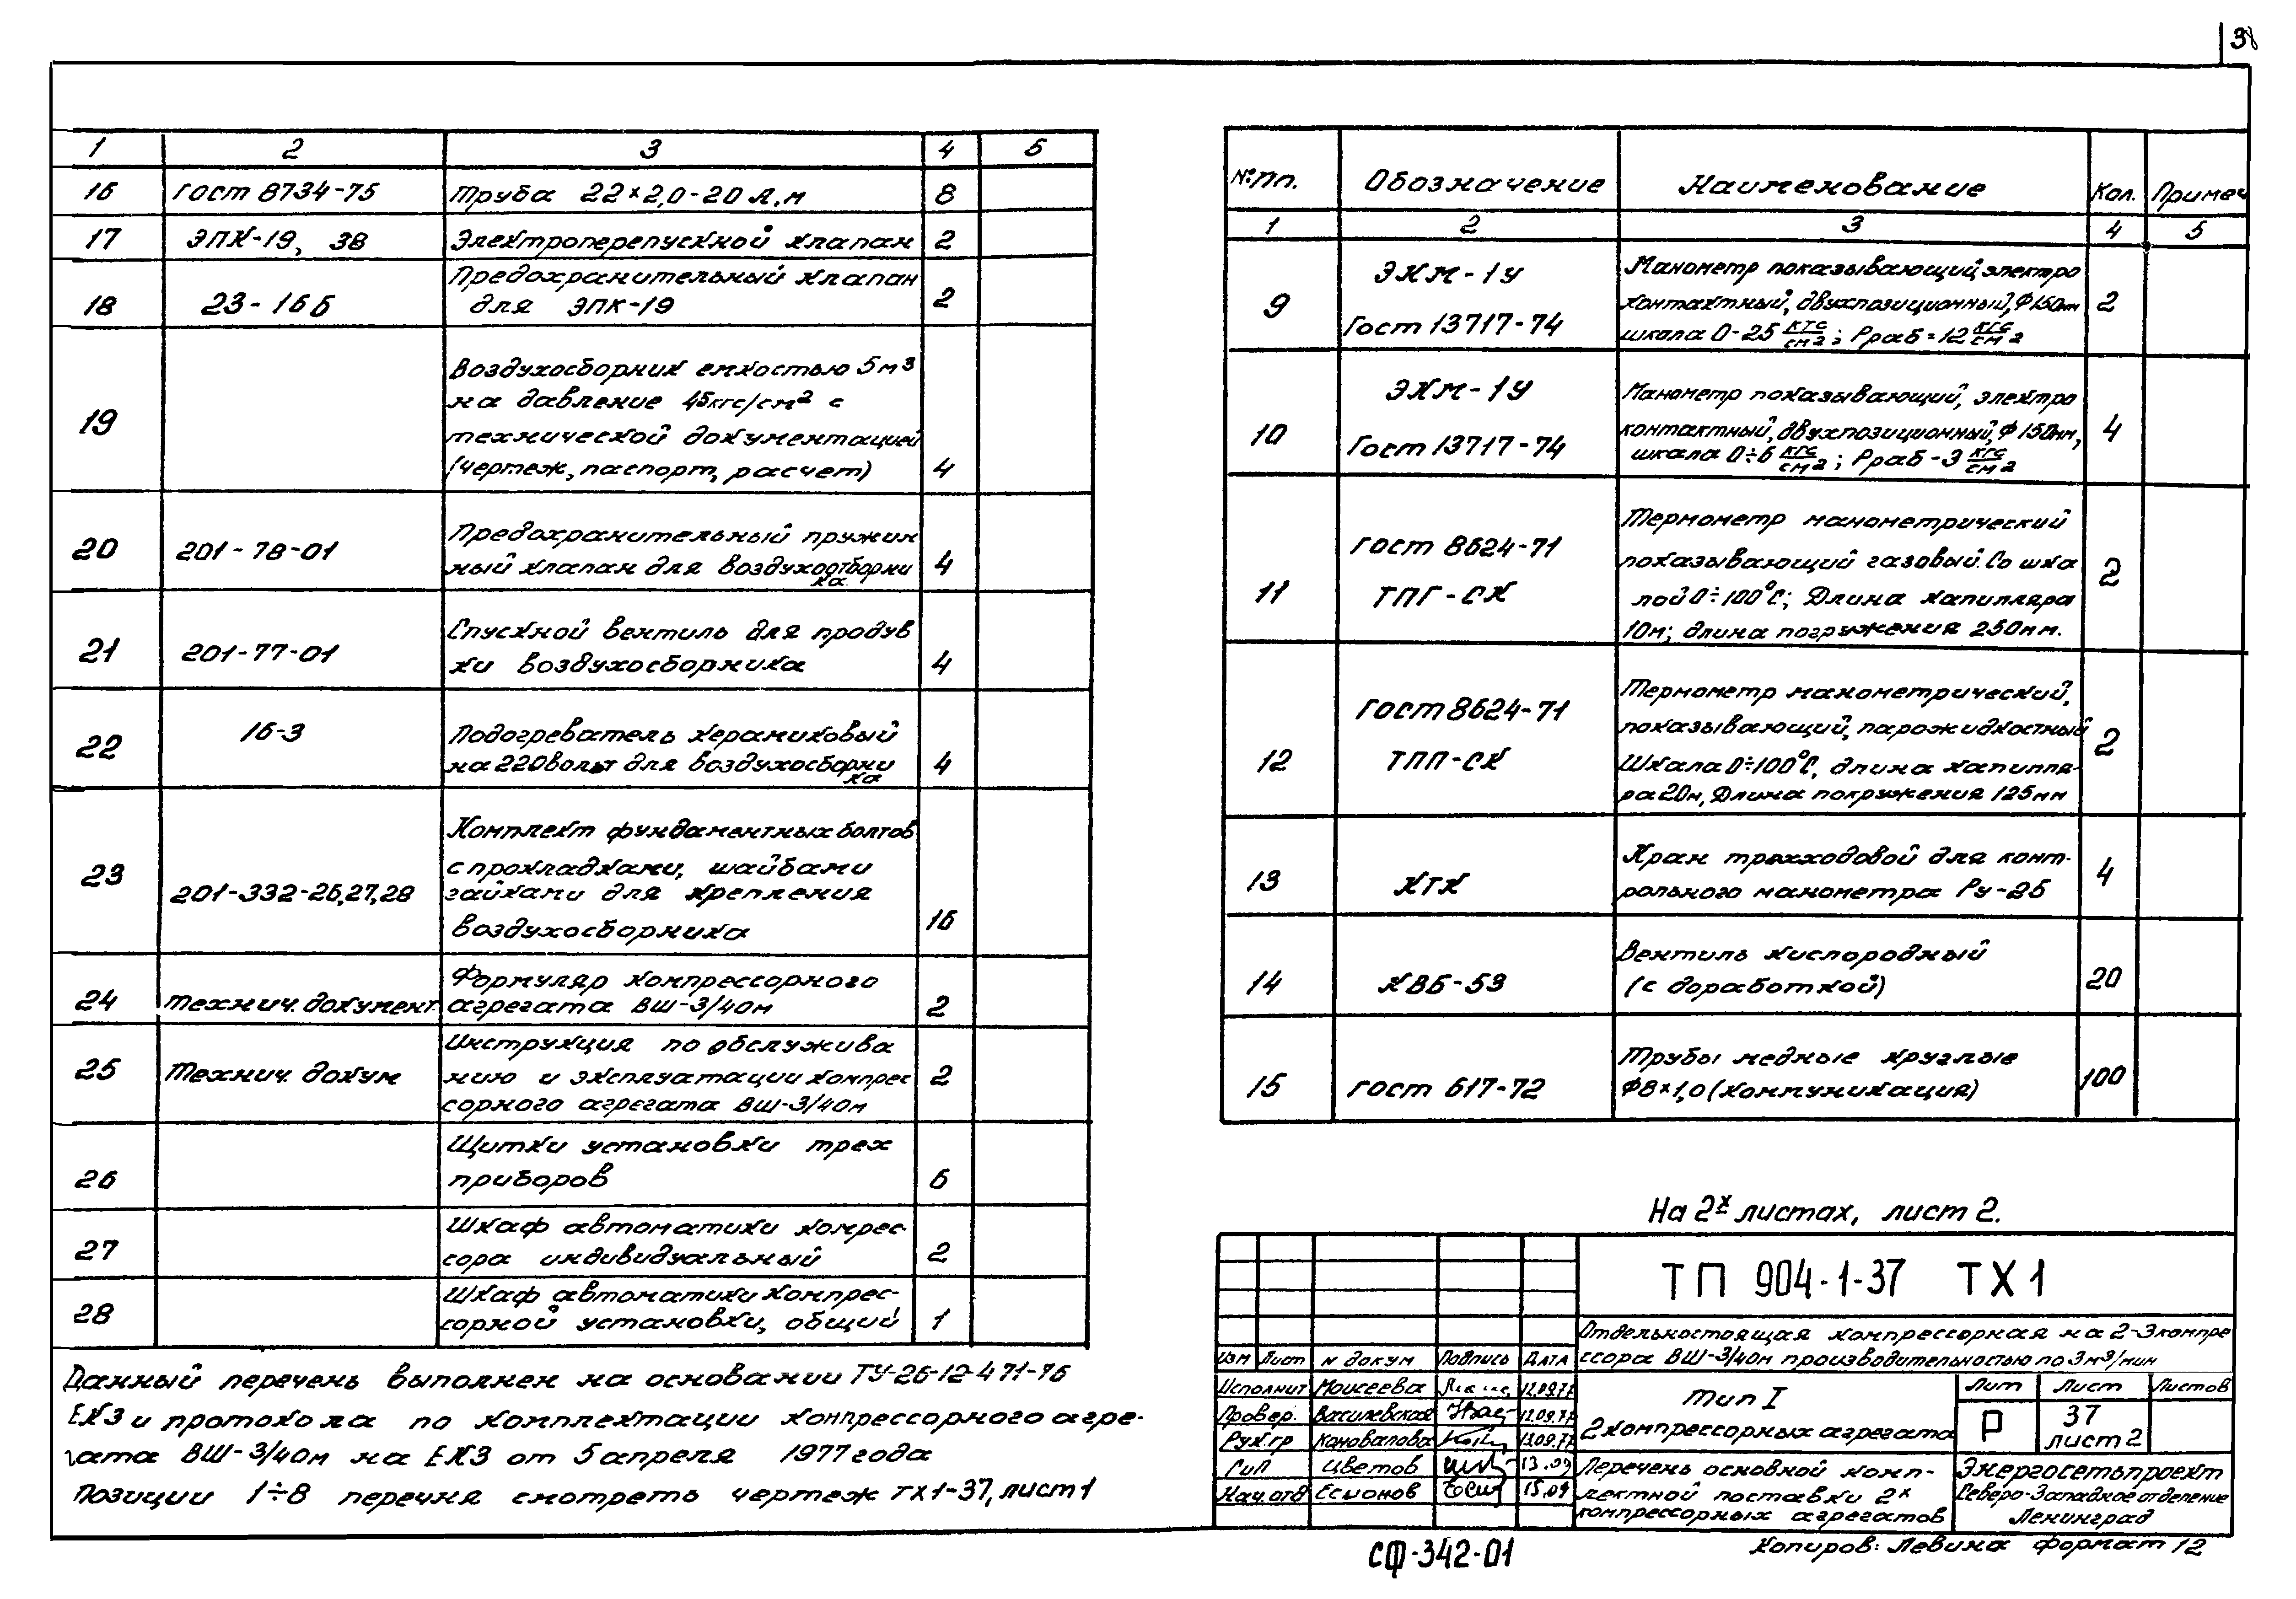 38
1 2 3 4 5
16 Гост 8734-75 Труба 22×2,0-20 Л.м 8
17 ЭПК-19, 38 Электроперепускной клапан 2
18 23-16б Предохранительный клапан
для ЭПК-19 2
19 Воздухосборник емкостью 5м³
на давление 45кгс/см² с
технической документацией
(чертеж, паспорт, расчет) 4
20 201-78-01 Предохранительный пружин
ный клапан для воздухоотборни
ка 4
21 201-77-01 Спускной вентиль для продув
ки воздухосборника 4
22 16-3 Подогреватель керамиковый
на 220вольт для воздухосборни
ка 4
23 201-332-26,27,28 Комплект фундаментных болтов
с прокладками, шайбами
гайками для крепления
воздухосборника 16
24 технич. документ. Формуляр компрессорного
агрегата ВШ-3/40м 2
25 Технич. докум Инструкция по обслужива
нию и эксплуатации компрес
сорного агрегата ВШ-3/40м 2
26 Щитки установки трех
приборов 6
27 Шкаф автоматики компрес-
сора индивидуальный 2
28 Шкаф автоматики компрес-
сорной установки, общий 1
Данный перечень выполнен на основании ТУ-26-12-471-76
ЕКЗ и протокола по комплектации компрессорного агре-
гата ВШ-3/40м на ЕКЗ от 5 апреля 1977 года
Позиции 1÷8 перечня смотреть чертеж ТХ1-37, лист 1
№пп. Обозначение Наименование Кол. Примеч
1 2 3 4 5
9 ЭКМ-1У
Гост 13717-74 Манометр показывающий, электро
контактный, двухпозиционный, ф150мм
шкала 0-25 кгс/см²; Рраб=12 кгс/см² 2
10 ЭКМ-1У
Гост 13717-74 Манометр показывающий, электро
контактный, двухпозиционный, ф150мм,
шкала 0÷6 кгс/см²; Рраб-3 кгс/см² 4
11 Гост 8624-71
ТПГ-СК Термометр манометрический
показывающий газовый. Со шка
лой 0÷100°С; Длина капилляра
10м; длина погружения 250мм. 2
12 Гост 8624-71
ТПП-СК Термометр манометрический,
показывающий, парожидкостный
Шкала 0÷100°С, длина капилля-
ра 20м, Длина погружения 125мм 2
13 КТК Кран трехходовой для конт-
рольного манометра Ру-25 4
14 КВБ-53 Вентиль кислородный
(с доработкой) 20
15 Гост 617-72 Трубы медные круглые
ф8×1,0 (коммуникация) 100
На 2х листах, лист 2.
ТП 904-1-37 ТХ1
Отдельностоящая компрессорная на 2-3 компре
ссора ВШ-3/40м производительностью по 3м³/мин
Изм Лист N докум Подпись Дата
Исполнит Моисеева 12.09.77
Провер. Василевская 12.09.77
Рук.гр Коновалова 13.09.77
ГиП Цветов 13.09
Нач. отд Есмонов 15.09
Тип I
2 компрессорных агрегата
Лит Лист Листов
Р 37
лист 2
Перечень основной комп-
лектной поставки 2х
компрессорных агрегатов
Энергосетьпроект
Северо-Западное отделение
Ленинград
СФ-342-01
Копиров: Левина Формат 12